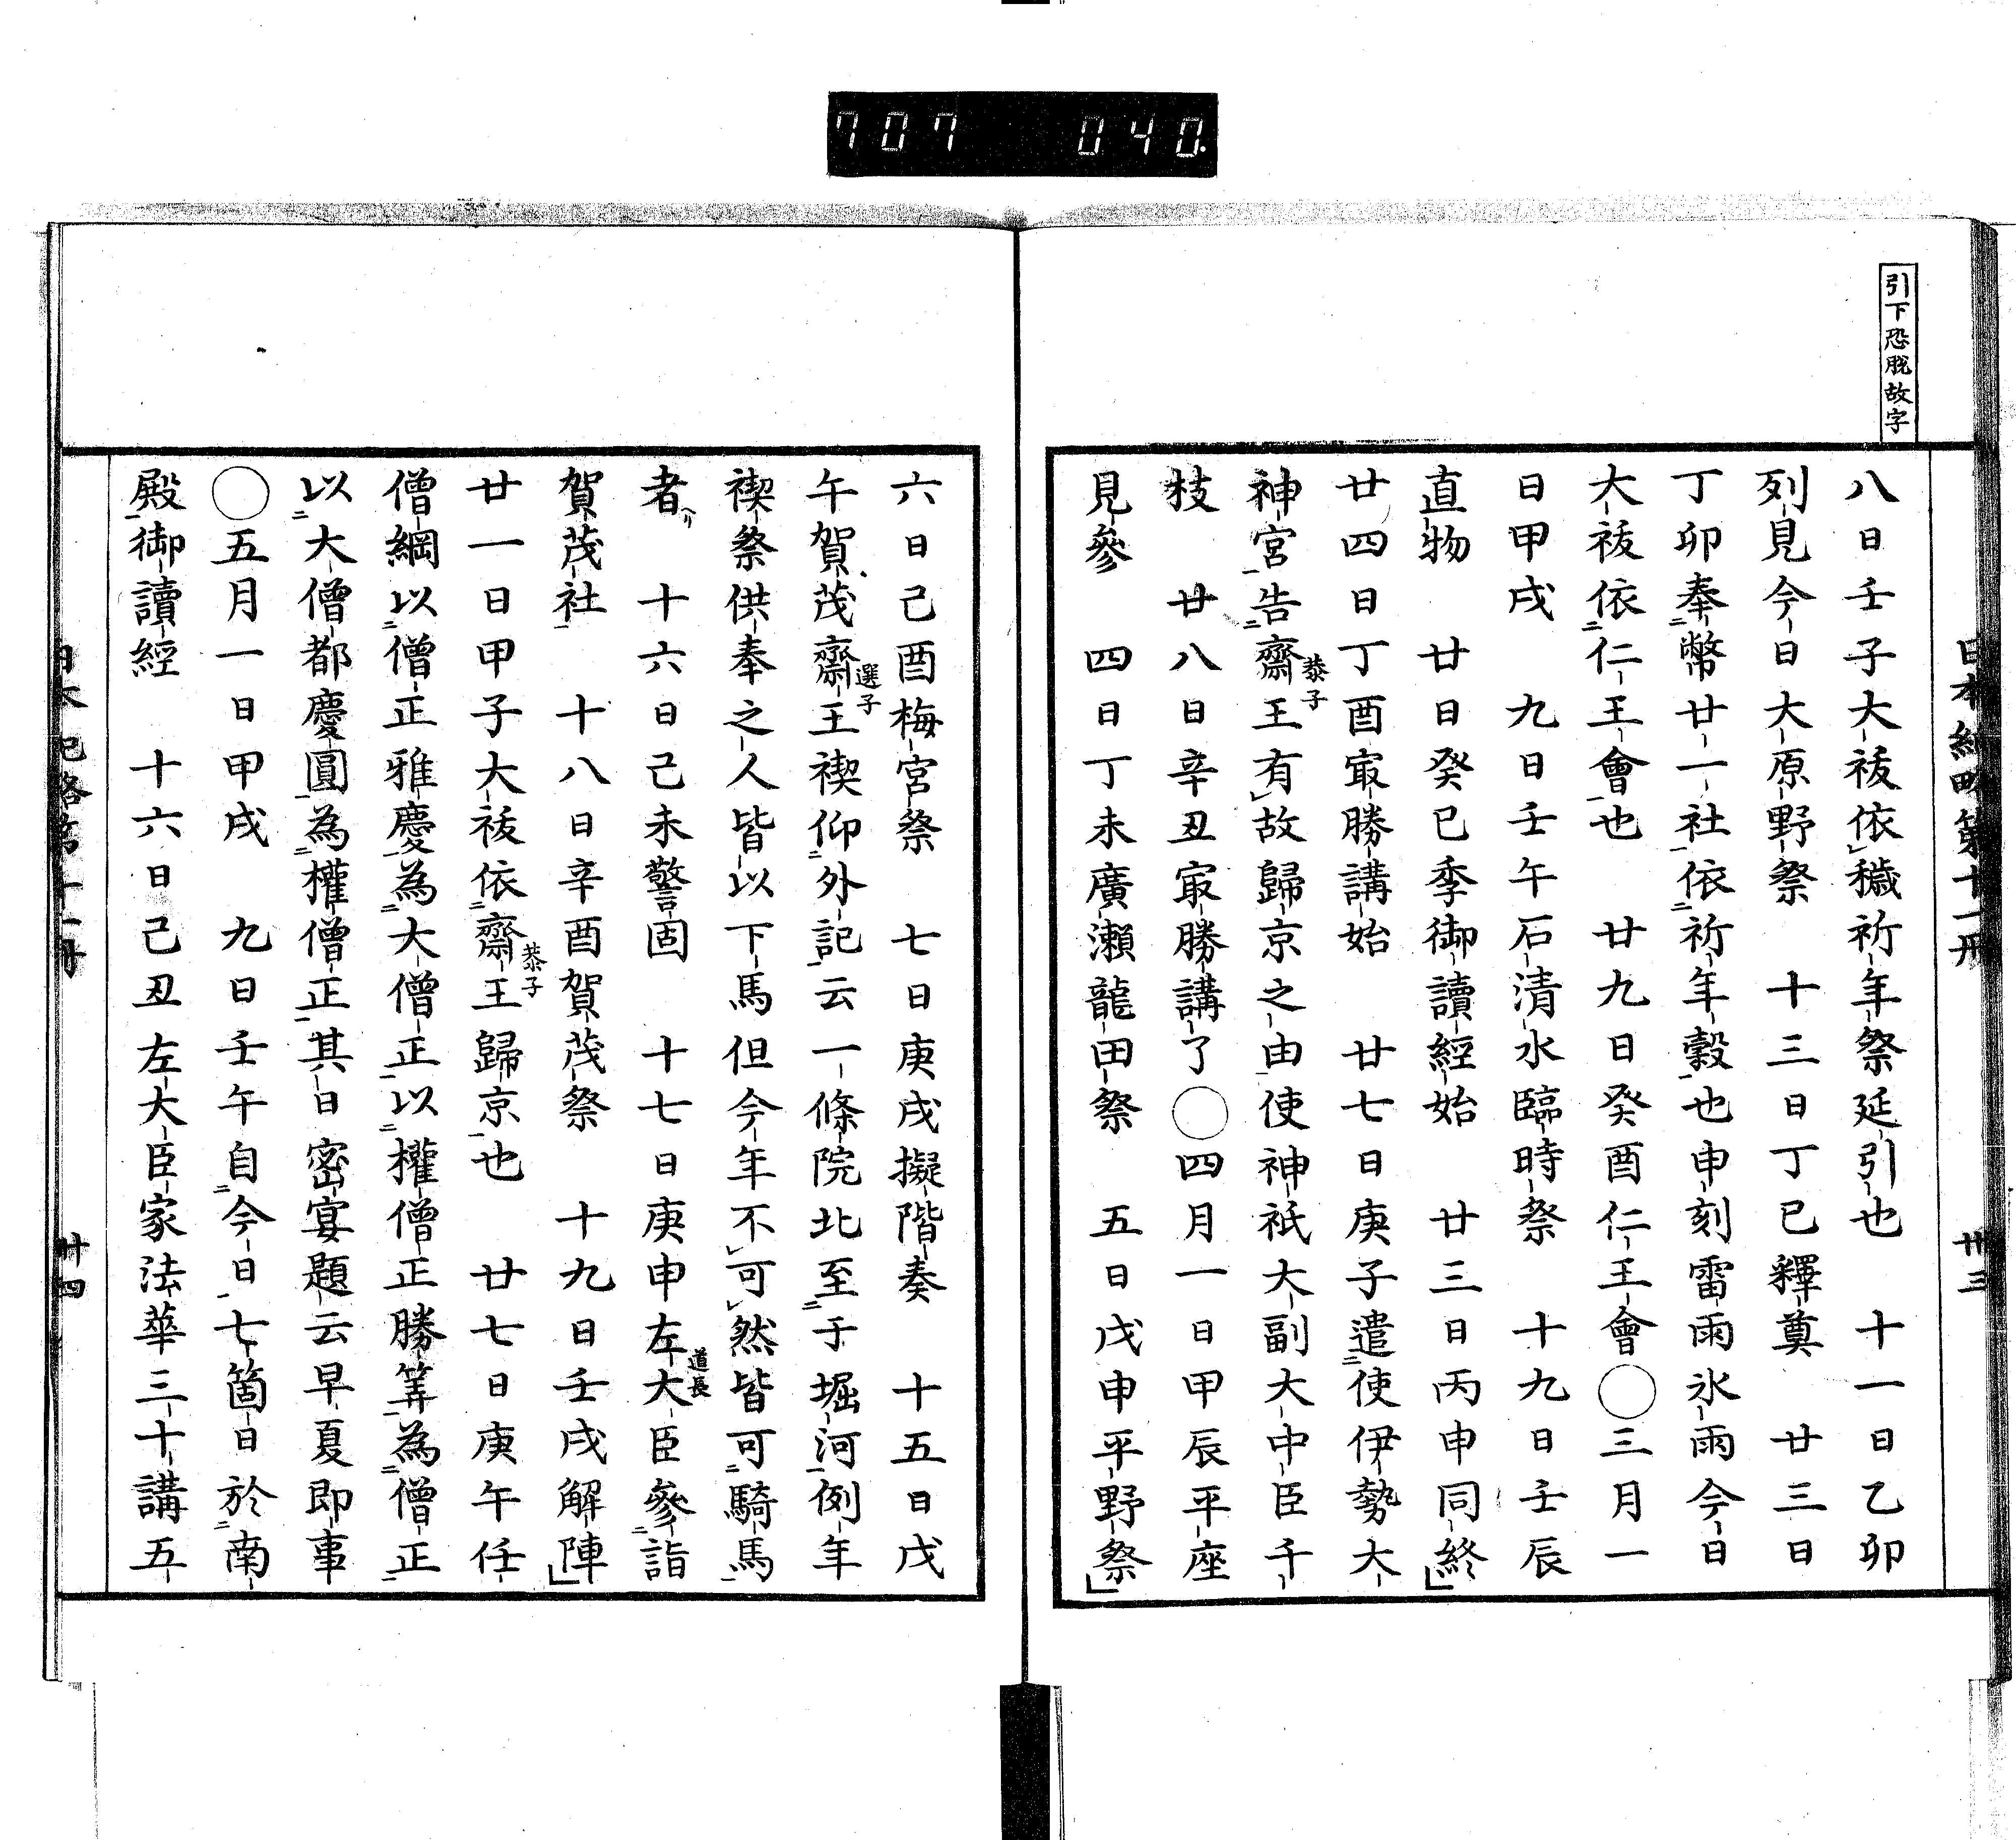 707 040.
引下恐脱故字
日本紀略第十一册 卅三
八日壬子大祓依穢祈年祭延引也 十一日乙卯
列見今日大原野祭 十三日丁巳釋奠 廿三日
丁卯奉幣廿一社依祈年穀也申刻雷雨氷雨今日
大祓依仁王會也 廿九日癸酉仁王會〇三月一
日甲戌 九日壬午石清水臨時祭 十九日壬辰
直物 廿日癸巳季御讀經始 廿三日丙申同終
廿四日丁酉㝡勝講始 廿七日庚子遣使伊勢大
神宮告齋王恭子有故歸京之由使神祇大副大中臣千
枝 廿八日辛丑㝡勝講了〇四月一日甲辰平座
見參 四日丁未廣瀬龍田祭 五日戊申平野祭
六日己酉梅宮祭 七日庚戌擬階奏 十五日戊
午賀茂齋王選子禊仰外記云一條院北至于堀河例年
禊祭供奉之人皆以下馬但今年不可然皆可騎馬
者 十六日己未警固 十七日庚申左大臣道長參詣
賀茂社 十八日辛酉賀茂祭 十九日壬戌解陣
廿一日甲子大祓依齋王恭子歸京也 廿七日庚午任
僧綱以僧正雅慶為大僧正以權僧正勝筭為僧正
以大僧都慶圓為權僧正其日密宴題云早夏即事
〇五月一日甲戌 九日壬午自今日七箇日於南
殿御讀經 十六日己丑左大臣家法華三十講五
日本紀略第十一册 卅四